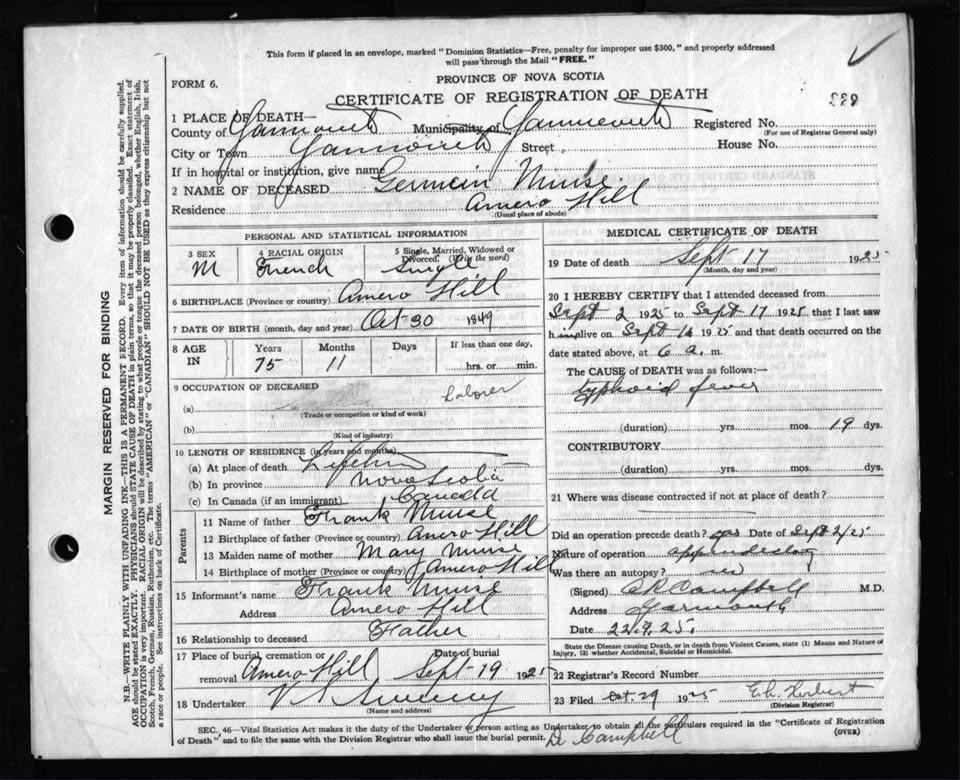 This form if placed in an envelope, marked "Dominion Statistics—Free, penalty for improper use $300," and properly addressed
will pass through the Mail "FREE."
PROVINCE OF NOVA SCOTIA
FORM 6.
CERTIFICATE OF REGISTRATION OF DEATH
1 PLACE OF DEATH—
County of Yarmouth Municipality of Yarmouth Registered No.
(For use of Registrar General only)
City or Town Yarmouth Street House No.
If in hospital or institution, give name
2 NAME OF DECEASED Germain Muise
Residence Amero Hill
(Usual place of abode)
PERSONAL AND STATISTICAL INFORMATION
3 SEX 4 RACIAL ORIGIN 5 Single, Married, Widowed or Divorced. (Write the word)
M French Single
6 BIRTHPLACE (Province or country) Amero Hill
7 DATE OF BIRTH (month, day and year) Oct 30 1849
8 AGE IN Years Months Days If less than one day,
75 11 hrs. or min.
9 OCCUPATION OF DECEASED
(a) Laborer
(Trade or occupation or kind of work)
(b)
(Kind of industry)
10 LENGTH OF RESIDENCE (in years and months)
(a) At place of death Lifetime
(b) In province Nova Scotia
(c) In Canada (if an immigrant) Canada
Parents
11 Name of father Frank Muise
12 Birthplace of father (Province or country) Amero Hill
13 Maiden name of mother Mary Muise
14 Birthplace of mother (Province or country) Amero Hill
15 Informant's name Frank Muise
Address Amero Hill
16 Relationship to deceased Father
17 Place of burial, cremation or removal Amero Hill Date of burial Sept 19 1925
18 Undertaker V S Sweeny
(Name and address)
MEDICAL CERTIFICATE OF DEATH
19 Date of death Sept 17 1925
(Month, day and year)
20 I HEREBY CERTIFY that I attended deceased from
Sept 2 1925 to Sept 17 1925 that I last saw
him alive on Sept 16 1925 and that death occurred on the
date stated above, at 6 a. m.
The CAUSE of DEATH was as follows:
typhoid fever
(duration) yrs. mos. 19 dys.
CONTRIBUTORY
(duration) yrs. mos. dys.
21 Where was disease contracted if not at place of death?
Did an operation precede death? yes Date of Sept 2/25
Nature of operation
Was there an autopsy? no
(Signed) Campbell M.D.
Address Yarmouth
Date 22.9.25.
State the Disease causing Death, or in death from Violent Causes, state (1) Means and Nature of
Injury, (2) whether Accidental, Suicidal or Homicidal.
22 Registrar's Record Number
23 Filed Oct. 29 1925 Herbert
(Division Registrar)
SEC. 46—Vital Statistics Act makes it the duty of the Undertaker or person acting as Undertaker to obtain all the particulars required in the "Certificate of Registration
of Death" and to file the same with the Division Registrar who shall issue the burial permit.
(OVER)
Dr Campbell
MARGIN RESERVED FOR BINDING
N.B.—WRITE PLAINLY WITH UNFADING INK—THIS IS A PERMANENT RECORD. Every item of information should be carefully supplied.
AGE should be stated EXACTLY. PHYSICIANS should STATE CAUSE OF DEATH in plain terms, so that it may be properly classified. Exact statement of
OCCUPATION is very important. RACIAL ORIGIN will be described by stating to what people or tongue the deceased person belonged, whether English, Irish,
Scotch, French, German, Russian, Ruthenian, etc. The terms "AMERICAN" or "CANADIAN" SHOULD NOT BE USED as they express citizenship but not
a race or people. See instructions on back of Certificate.